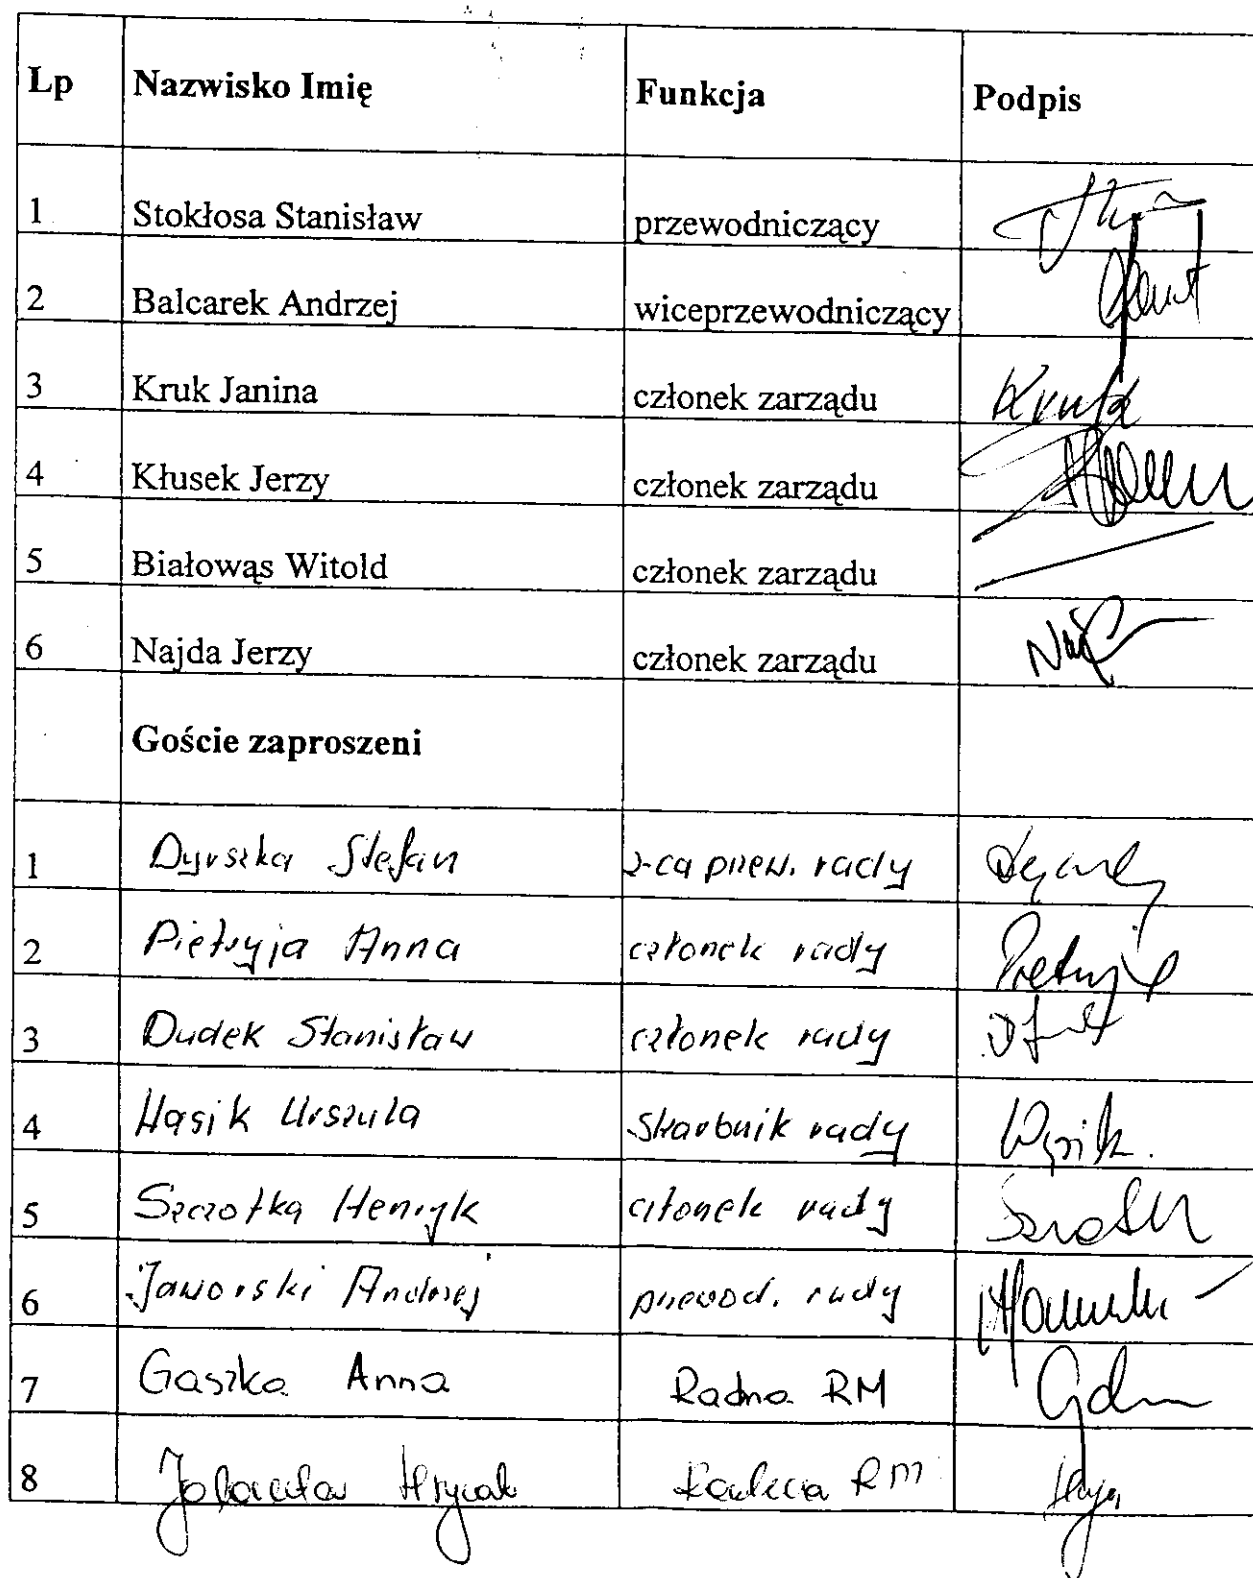 Lp Nazwisko Imię Funkcja Podpis
1 Stokłosa Stanisław przewodniczący
2 Balcarek Andrzej wiceprzewodniczący
3 Kruk Janina członek zarządu Kruk
4 Kłusek Jerzy członek zarządu
5 Białowąs Witold członek zarządu
6 Najda Jerzy członek zarządu
Goście zaproszeni
1 Dyrszka Stefan z-ca przew. rady
2 Pietryja Anna członek rady Pietryja
3 Dudek Stanisław członek rady
4 Wąsik Urszula skarbnik rady Wąsik.
5 Szczotka Henryk członek rady
6 Jaworski Andrzej przewod. rady
7 Gaszka Anna Radna RM
8 RM